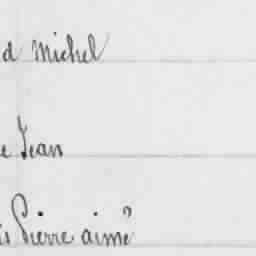 d Michel
e Jean
is Pierre aimé